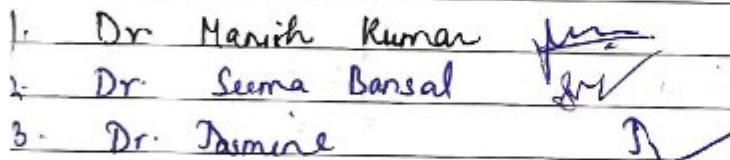 1. Dr Manish Kumar
2. Dr. Seema Bansal
3. Dr. Jasmine